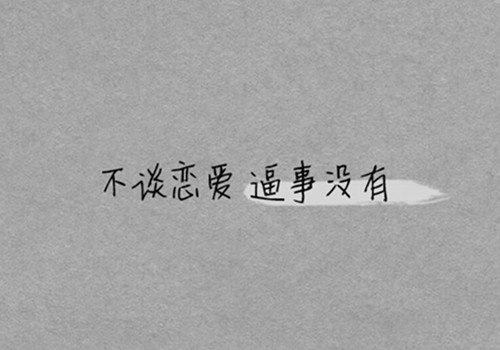 不谈恋爱 逼事没有